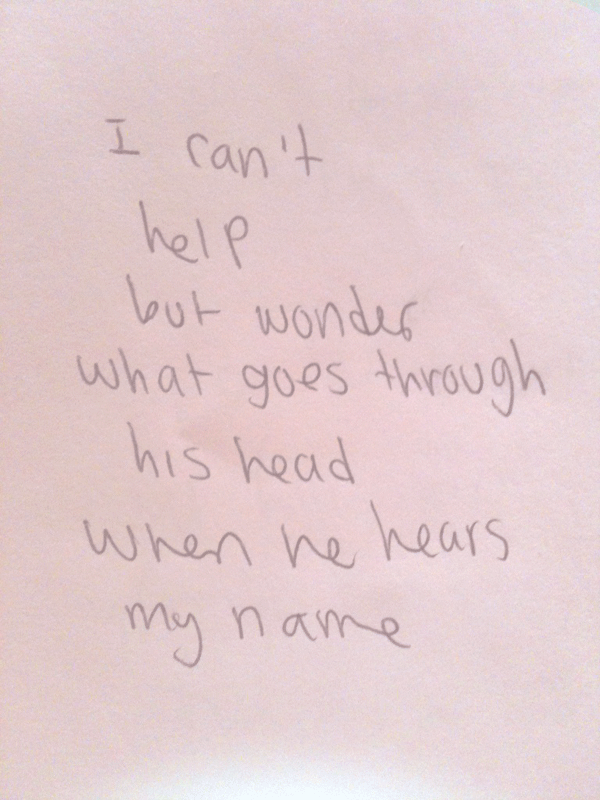 I can't
help
but wonder
what goes through
his head
when he hears
my name